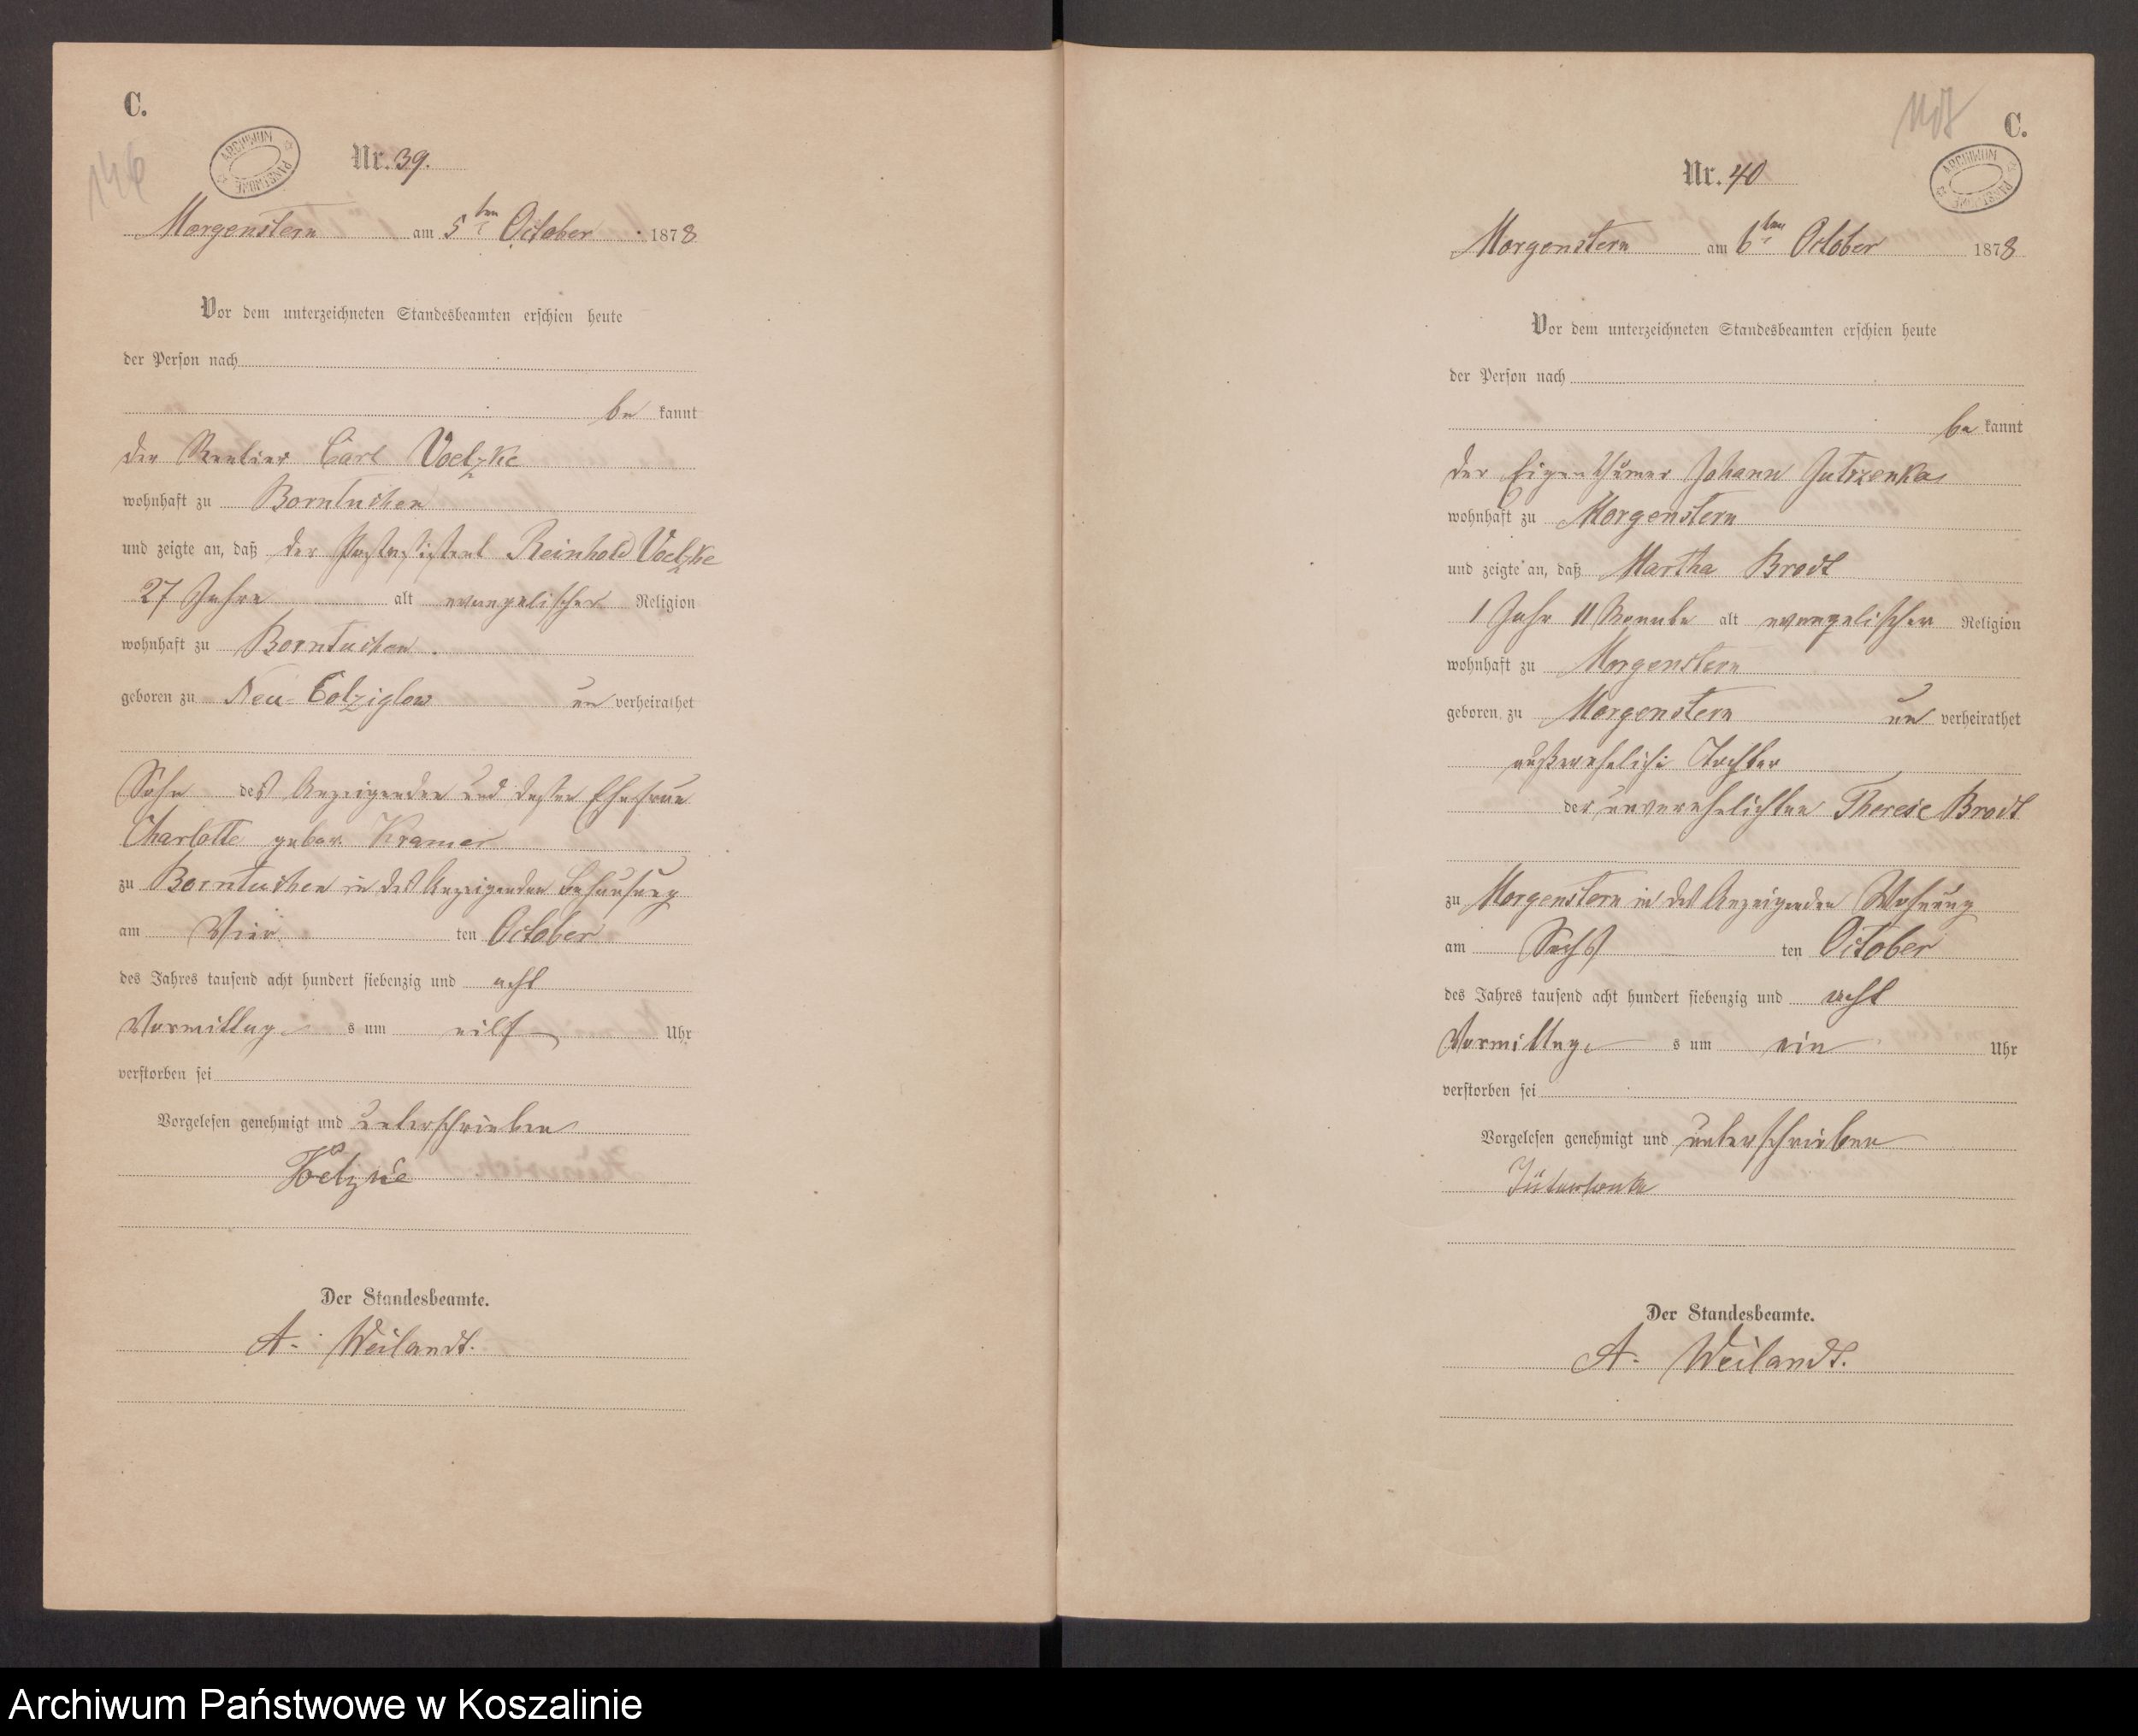 C.
146
ARCHIWUM PAŃSTWOWE
Nr. 39.
Morgenstern am 5ten October 1878
Vor dem unterzeichneten Standesbeamten erschien heute
der Person nach
be kannt
der Rentier Carl Voelzke
wohnhaft zu Borntuchen
und zeigte an, daß der Postassistent Reinhold Voelzke
27 Jahre alt evangelischer Religion
wohnhaft zu Borntuchen.
geboren zu Neu-Colziglow un verheirathet
Sohn des Anzeigenden und dessen Ehefrau
Charlotte gebor. Kramer
zu Borntuchen in des Anzeigenden Behausung
am Vier ten October
des Jahres tausend acht hundert siebenzig und acht
Vormittag s um eilf Uhr
verstorben sei
Vorgelesen genehmigt und unterschrieben
Voelzke
Der Standesbeamte.
A. Weilandt.
C.
ARCHIWUM PAŃSTWOWE
Nr. 40
Morgenstern am 6ten October 1878
Vor dem unterzeichneten Standesbeamten erschien heute
der Person nach
be kannt
der Eigenthümer Johann Jutrzenka
wohnhaft zu Morgenstern
und zeigte an, daß Martha Brodt
1 Jahr 11 Monate alt evangelischer Religion
wohnhaft zu Morgenstern
geboren zu Morgenstern un verheirathet
außereheliche Tochter
der unverehelichten Therese Brodt
zu Morgenstern in des Anzeigenden Wohnung
am Sechs ten October
des Jahres tausend acht hundert siebenzig und acht
Vormittag s um ein Uhr
verstorben sei
Vorgelesen genehmigt und unterschrieben
Der Standesbeamte.
A. Weilandt.
Archiwum Państwowe w Koszalinie